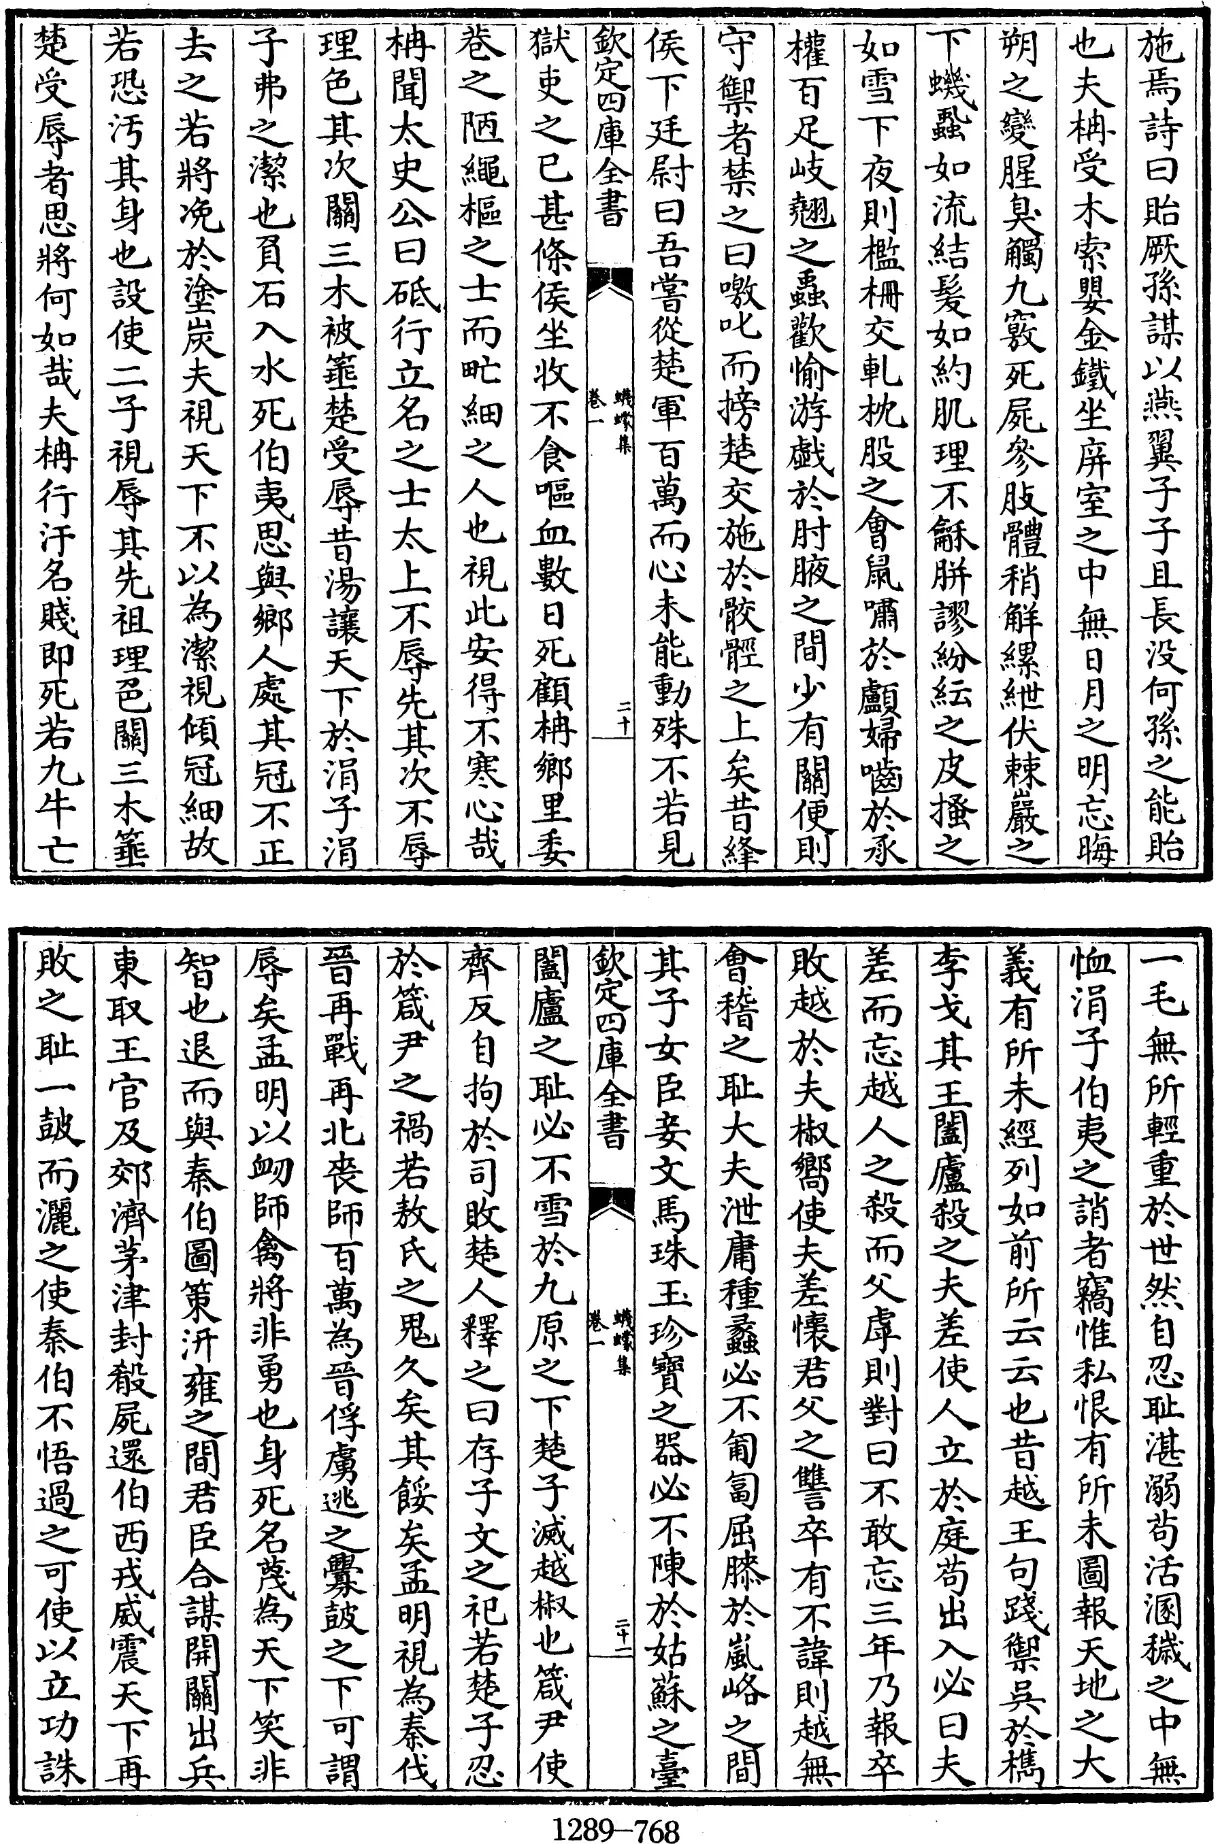 施焉詩曰貽厥孫謀以燕翼子子且長没何孫之能貽
也夫柟受木索嬰金鐵坐屏室之中無日月之明忘晦
朔之變腥臭觸九竅死屍參肢體稍解縲紲伏棘巖之
下蟣蝨如流結髮如約肌理不龢胼謬紛紜之皮搔之
如雪下夜則檻柵交軋枕股之會鼠嘯於顱婦嚙於承
權百足岐翹之蟲歡愉游戲於肘腋之間少有關便則
守禦者禁之曰噭叱而搒楚交施於骹脛之上矣昔絳
侯下廷尉曰吾嘗從楚軍百萬而心未能動殊不若見
欽定四庫全書
蠛蠓集
卷一
二十
獄吏之已甚條侯坐收不食嘔血數日死顧柟鄉里委
巷之陋繩樞之士而甿細之人也視此安得不寒心哉
柟聞太史公曰砥行立名之士太上不辱先其次不辱
理色其次關三木被箠楚受辱昔湯讓天下於涓子涓
子弗之潔也負石入水死伯夷思與鄉人處其冠不正
去之若將浼於塗炭夫視天下不以為潔視傾冠細故
若恐汚其身也設使二子視辱其先祖理色關三木箠
楚受辱者思將何如哉夫柟行汙名賤即死若九牛亡
一毛無所輕重於世然自忍耻湛溺苟活溷穢之中無
恤涓子伯夷之誚者竊惟私恨有所未圖報天地之大
義有所未經列如前所云云也昔越王句踐禦吳於檇
李戈其王闔廬殺之夫差使人立於庭苟出入必曰夫
差而忘越人之殺而父虖則對曰不敢忘三年乃報卒
敗越於夫椒嚮使夫差懷君父之讐卒有不諱則越無
㑹稽之耻大夫泄庸種蠡必不匍匐屈膝於嵐峪之間
其子女臣妾文馬珠玉珍寶之器必不陳於姑蘇之臺
欽定四庫全書
蠛蠓集
卷一
二十一
闔廬之耻必不雪於九原之下楚子滅越椒也箴尹使
齊反自拘於司敗楚人釋之曰存子文之祀若楚子忍
於箴尹之禍若敖氏之鬼久矣其餒矣孟明視為秦伐
晉再戰再北喪師百萬為晉俘虜逃之釁鼓之下可謂
辱矣孟明以衂師禽將非勇也身死名蔑為天下笑非
智也退而與秦伯圖策汧雍之間君臣合謀開關出兵
東取王官及郊濟茅津封殽屍還伯西戎威震天下再
敗之耻一鼓而灑之使秦伯不悟過之可使以立功誅
1289—768